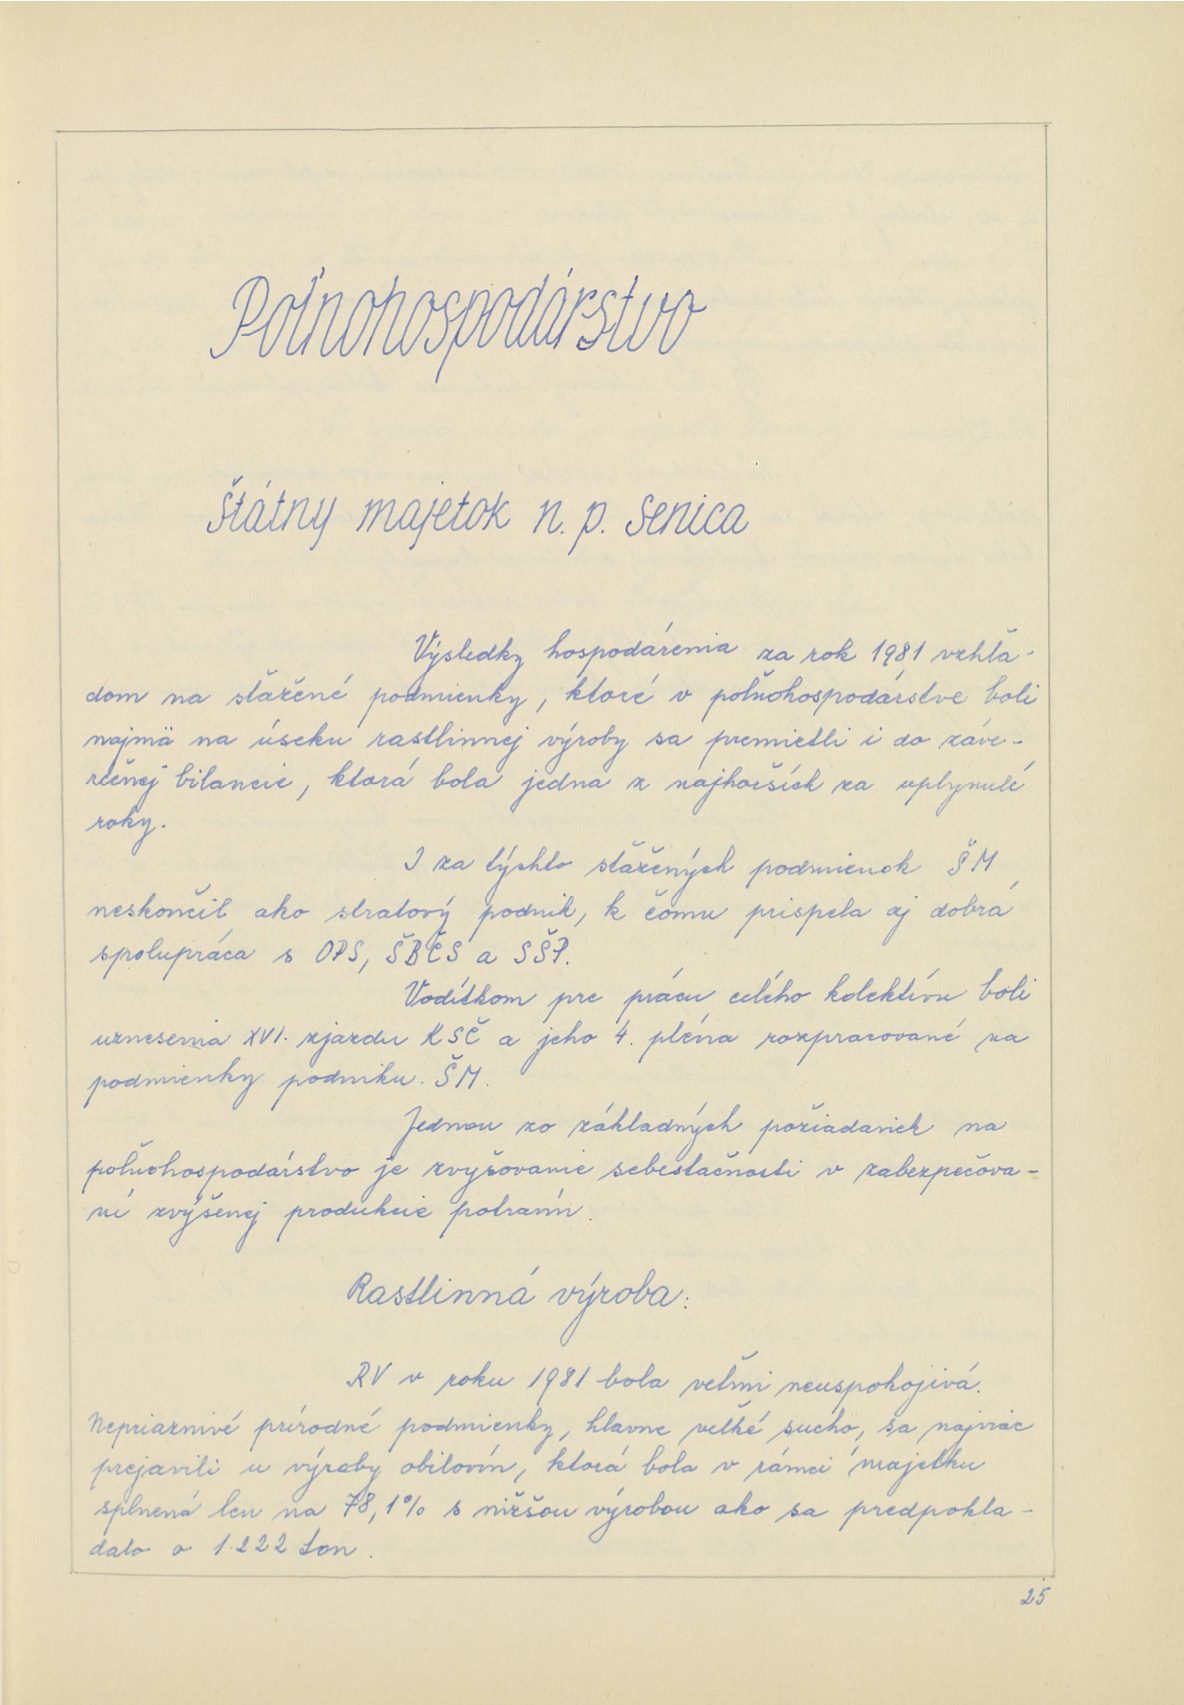 Poľnohospodárstvo
Štátny majetok n. p. Senica
Výsledky hospodárenia za rok 1981 vzhľa-
dom na sťažené podmienky, ktoré v poľnohospodárstve boli
najmä na úseku rastlinnej výroby sa premietli i do záve-
rečnej bilancie, ktorá bola jedna z najhorších za uplynulé
roky.
I za týchto sťažených podmienok ŠM
neskončil ako stratový podnik, k čomu prispela aj dobrá
spolupráca s OPS, ŠBČS a SŠP.
Vodítkom pre prácu celého kolektívu boli
uznesenia XVI. zjazdu KSČ a jeho 4. pléna rozpracované na
podmienky podniku. ŠM.
Jednou zo základných požiadaviek na
poľnohospodárstvo je zvyšovanie sebestačnosti v zabezpečova-
ní zvýšenej produkcie potravín.
Rastlinná výroba:
RV v roku 1981 bola veľmi neuspokojivá.
Nepriaznivé prírodné podmienky, hlavne veľké sucho, sa najviac
prejavili u výroby obilovín, ktorá bola v rámci majetku
splnená len na 78,1% s nižšou výrobou ako sa predpokla-
dalo o 1.222 ton.
25